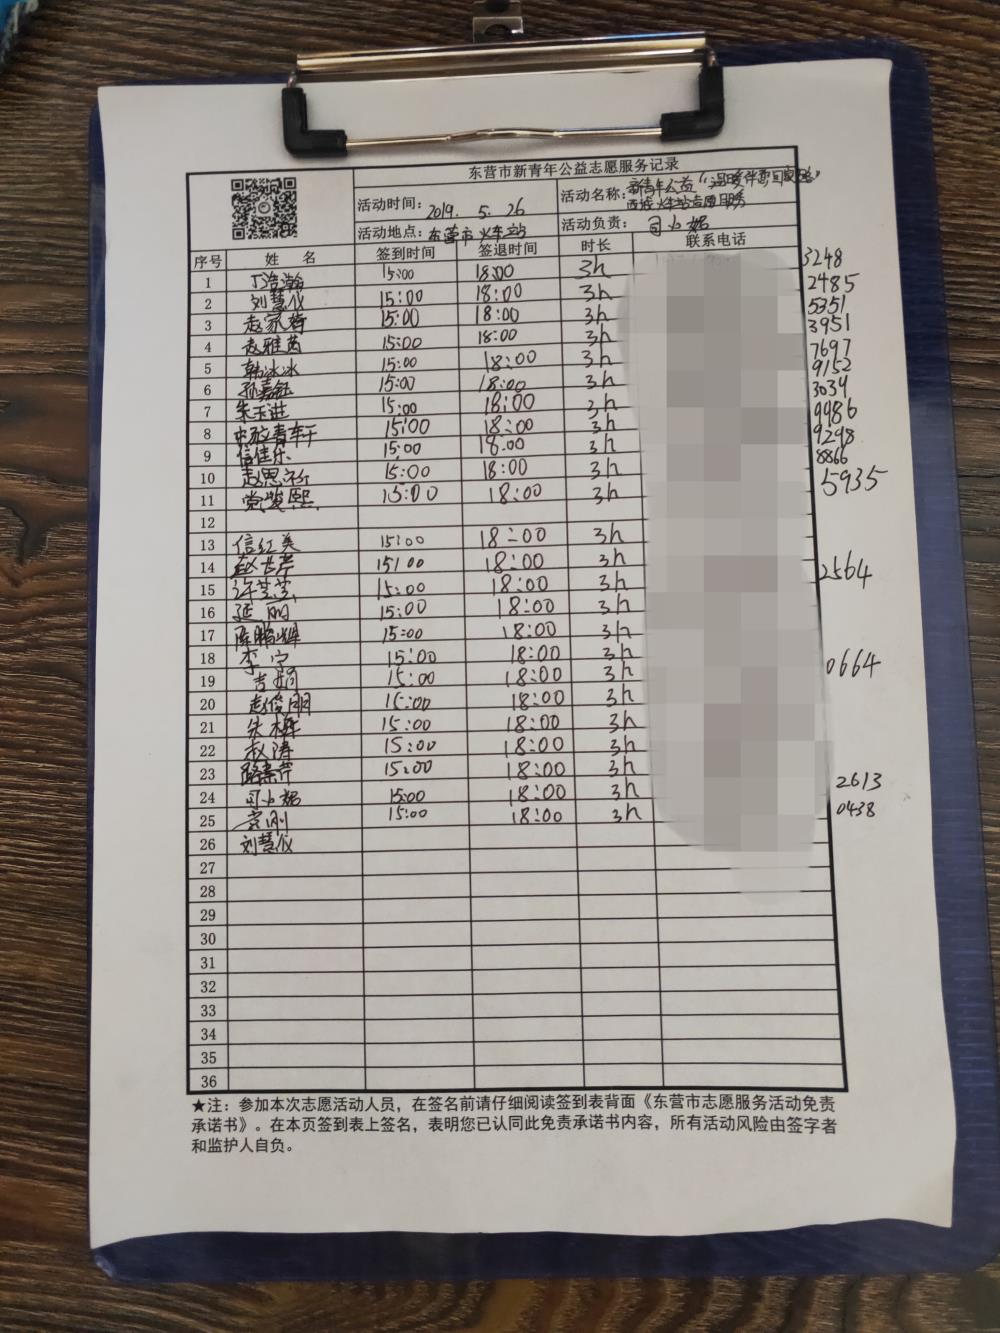 东营市新青年公益志愿服务记录
活动时间：2019. 5. 26
活动名称：新青年公益
火车站志愿服务
活动地点：东营市火车站
活动负责：司小妮
序号 姓名 签到时间 签退时间 时长 联系电话
1 丁浩瀚 15:00 18:00 3h 3248
2 刘慧仪 15:00 18:00 3h 2485
3 赵家 15:00 18:00 3h 5351
4 赵雅茜 15:00 18:00 3h 3951
5 韩冰冰 15:00 18:00 3h 7697
6 孙嘉钰 15:00 18:00 3h 9152
7 朱玉进 15:00 18:00 3h 3039
8 15:00 18:00 3h 9986
9 信佳乐 15:00 18:00 3h 9298
10 赵思 15:00 18:00 3h 8866
11 党俊熙 15:00 18:00 3h 5935
12
13 信红美 15:00 18:00 3h
14 赵 15:00 18:00 3h 2564
15 许芝芝 15:00 18:00 3h
16 延丽 15:00 18:00 3h
17 陈鹏辉 15:00 18:00 3h
18 李宁 15:00 18:00 3h 0664
19 吉娟 15:00 18:00 3h
20 赵俊朋 15:00 18:00 3h
21 朱梅 15:00 18:00 3h
22 赵涛 15:00 18:00 3h
23 15:00 18:00 3h
24 司小妮 15:00 18:00 3h 2613
25 刚 15:00 18:00 3h 0438
26 刘慧仪
27
28
29
30
31
32
33
34
35
36
★注：参加本次志愿活动人员，在签名前请仔细阅读签到表背面《东营市志愿服务活动免责
承诺书》。在本页签到表上签名，表明您已认同此免责承诺书内容，所有活动风险由签字者
和监护人自负。